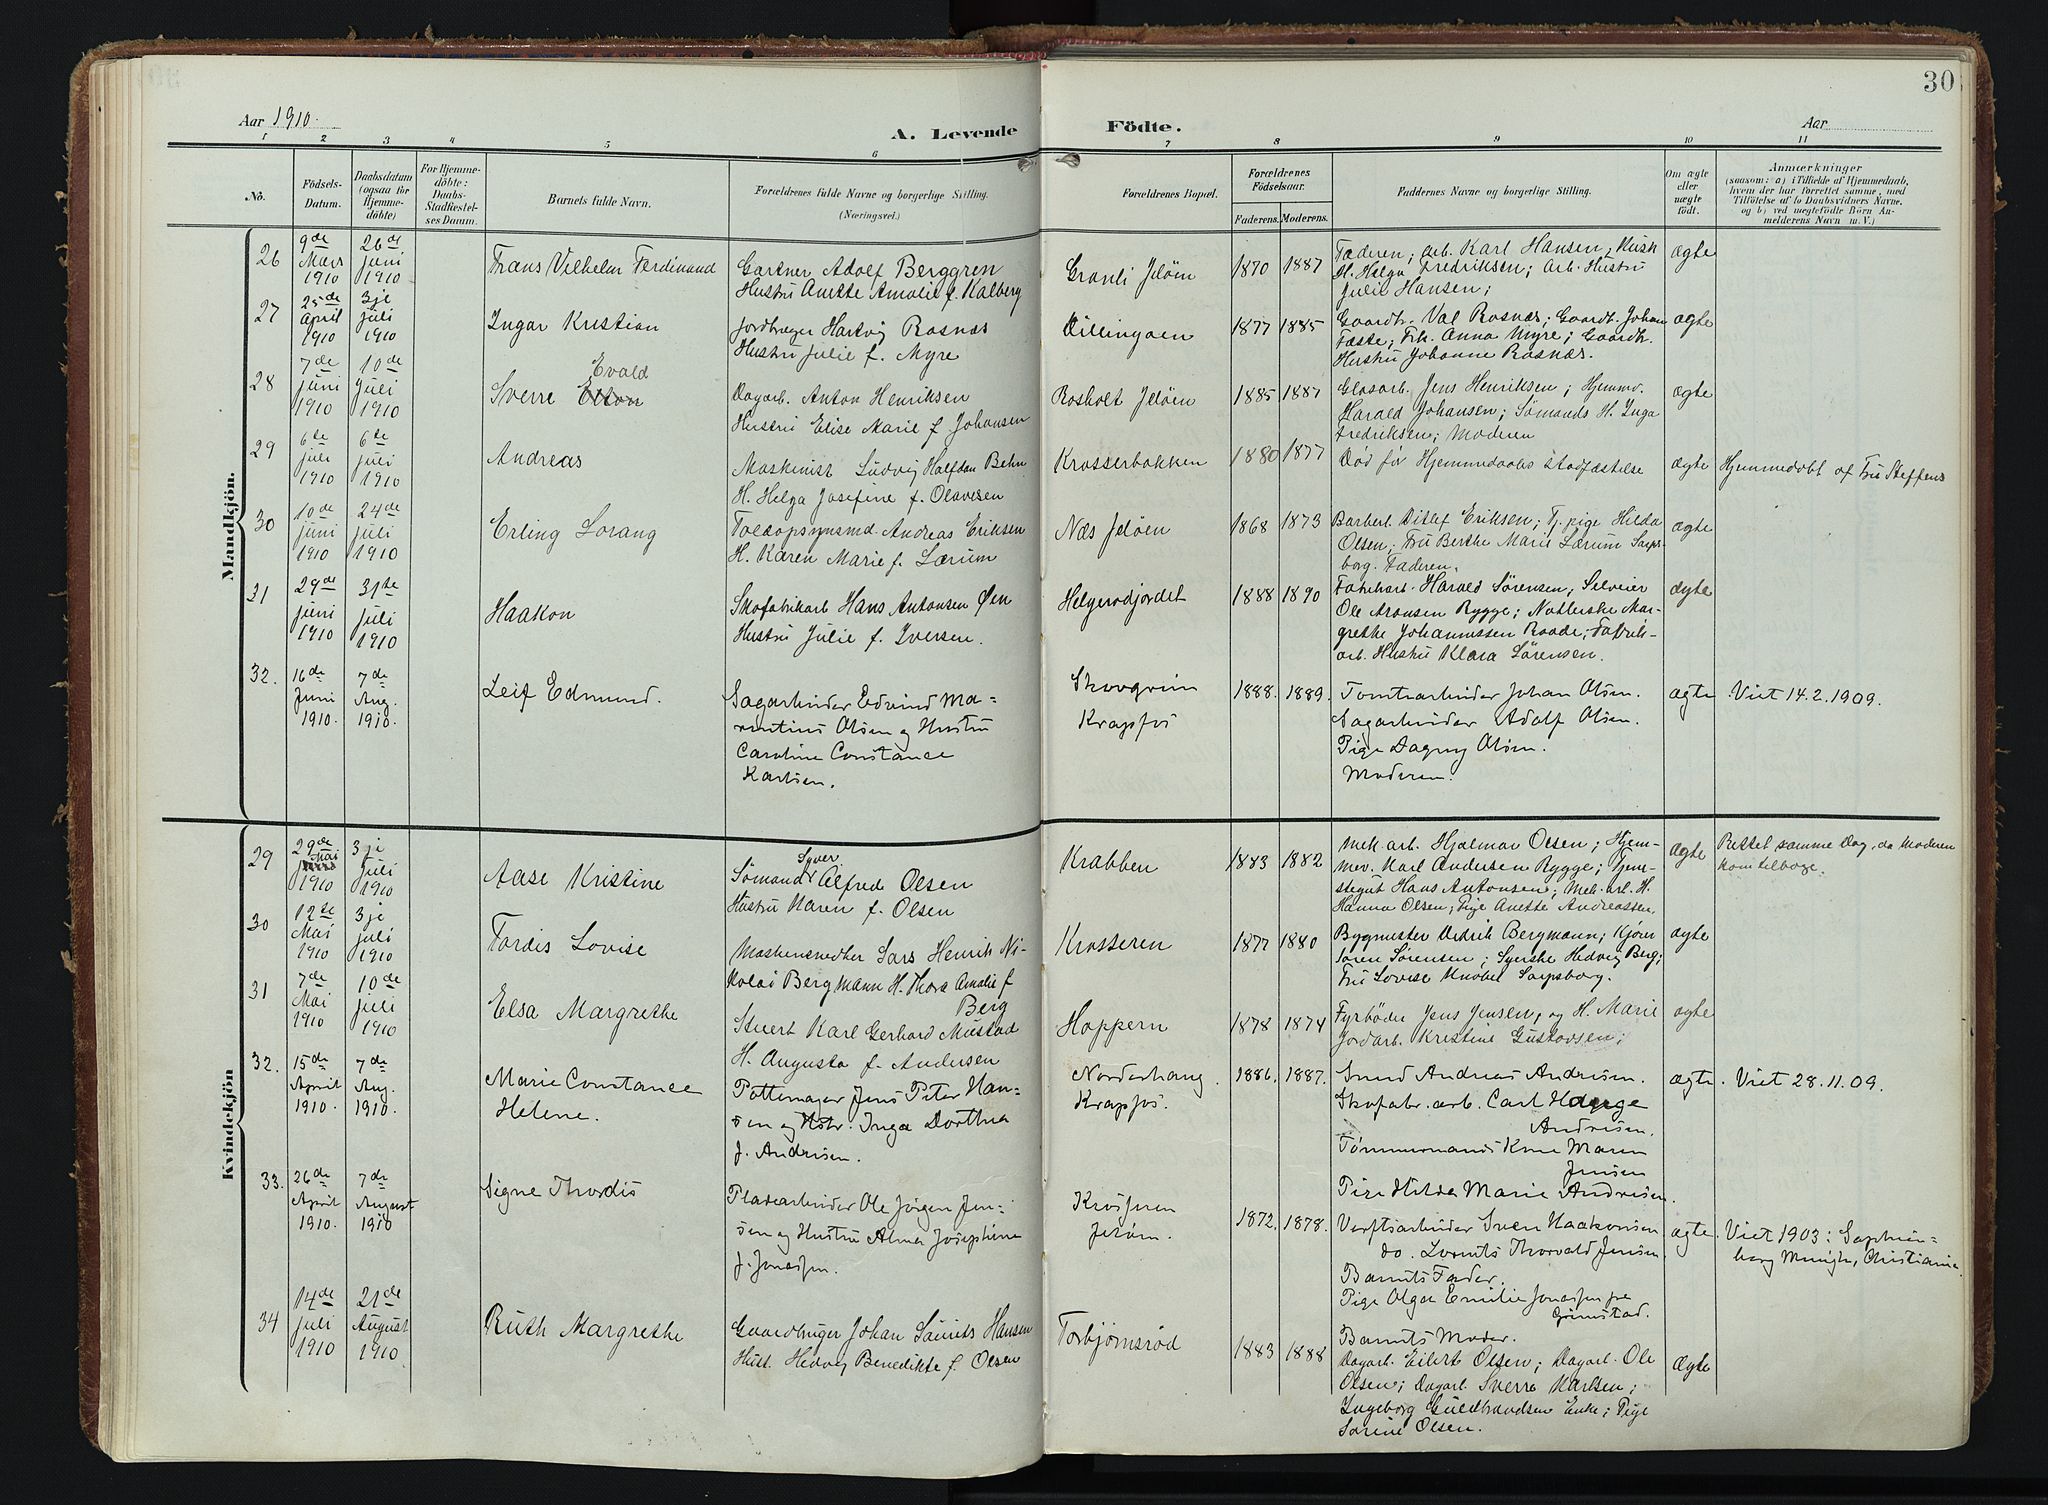 30
Aar 1910.
A. Levende
Födte.
Aar
1 2 3 4 5 6 7 8 9 10 11
No.
Födsels-
Datum.
Daabsdatum
(ogsaa for
Hjemme-
döbte)
For Hjemme-
döbte:
Daabs-
Stadfæstel-
ses Datum.
Barnets fulde Navn.
Forældrenes fulde Navne og borgerlige Stilling.
(Næringsvei.)
Forældrenes Bopæl.
Forældrenes
Födselsaar.
Faderens. Moderens.
Faddernes Navne og borgerlige Stilling.
Om ægte
eller
uægte
født.
Anmærkninger
(saasom: a) i Tilfælde af Hjemmedaab,
hvem der har forrettet samme, med
Tilföielse af to Daabsvidners Navne.
og b) ved uegtefödte Börn An-
melderens Navn m. V.)
Mandkjön.
26
9de
Mars
1910
26de
juni
1910
Frans Vilhelm Ferdinand
Gartner Adolf Berggren
Hustru Anette Amalie f. Kalberg
Granli Jeløen
1870 1887
Faderen; arb. Karl Hansen; Kusk
H. Helga Fredriksen; arb. Hustru
Julie Hansen;
ægte
27
25de
April
1910
3je
juli
1910
Ingar Kristian
Jordbruger Hartvig Rosnæs
Hustru Julie f. Myre
Dillingøen
1877 1885
Gaardbr. Val Rosnæs; Gaardb. Johan
Faste; Frk. Anna Myre; Gaardb.
Hustru Johanne Rosnæs.
ægte
28
7de
juni
1910
10de
Juli
1910
Evald
Sverre Elton
Dagarb. Anton Henriksen
Hustru Elise Marie f Johansen
Rosholt Jeløen
1885 1887
Glasarb. Jens Henriksen; Hjemmv.
Harald Johansen; Sømands H. Inga
Fredriksen; Moderen
ægte
29
6te
juli
1910
6te
juli
1910
Andreas
Maskinist Ludvig Halfdan Behn
H. Helga Josefine f. Olavesen
Krosserbakken
1880 1877
Død før Hjemmedaabs stadfæstelse
ægte
Hjemmedøbt af Fru Steffens
30
10de
juni
1910
24de
juli
1910
Erling Lorang
Toldopsynsmd. Andreas Eriksen
H. Karen Marie f. Lærum
Næs Jeløen
1868 1873
Barberl. Ditlef Eriksen; Tj. pige Hilda
Olsen; Fru Berthe Marie Lærum Sarps-
borg. Faderen.
ægte
31
29de
juni
1910
31te
juli
1910
Haakon
Skofabrikarb Hans Antonsen Øen
Hustru Julie f. Iversen.
Helgerødjordet
1888 1890
Fabrikarb. Harald Sørensen; Selveier
Ole Aronsen Rygge; Natlerske Mar-
grethe Johannessen Raade; Fabrik-
arb. Hustru Klara Sørensen.
ægte
32.
16de
Juni
1910.
7de
Aug.
1910.
Leif Edmund.
Sagarbeider Edvind Ma-
rentius Olsen og Hustru
Caroline Constance
Karlsen.
Skovgrim
Krapfos
1888. 1889.
Tomtearbeider Johan Olsen.
Sagarbeider Adolf Olsen.
Pige Dagny Olsen.
Moderen.
ægte
Viet 14.2.1909.
Kvindekjön
29
29de
Mai
1910
3je
juli
1910
Aase Kristine
Syver
Sømand Alfred Olsen
Hustru Karen f. Olsen
Krabben
1883 1882
Mek. arb. Hjalmar Olsen; Hjem-
mev. Karl Andersen Rygge; Tjene-
stegut Hans Antonsen; Mek. arb. H.
Hanna Olsen; Pige Anette Andreassen.
ægte
Rettet samme Dag, da Moderen
kom tilbage.
30
12te
Mai
1910
3je
juli
1910
Tordis Lovise
Maskensnedker Lars Henrik Ni-
kolai Bergmann H. Thora Amalie f
Berg
Krosseren
1877 1880
Bygmester Didrik Bergmann; Kjører
Søren Sørensen; Syerske Hedvig Berg;
Fru Lovise Knobel Sarpsborg.
ægte
31
7de
Mai
1910
10de
juli
1910
Elsa Margrethe
Stuert Karl Gerhard Mustad
H. Augusta f. Andersen
Hoppern
1878 1874
Fyrbøder Jens Jensen, og H. Marie
Jordarb. Kristine Gustavsen;
ægte
32.
15de
April
1910.
7de
Aug.
1910.
Marie Constance
Helene.
Pottemager Jens Peter Han-
sen og Hstr. Inga Dorthea
f. Andersen.
Norderhaug
Krapfos.
1886. 1887.
Smed Andreas Andersen.
Skofabr. arb. Carl Hauge
Andersen.
Tømmermands Kone Maren
Jensen
Pige Hilda Marie Andersen.
ægte.
Viet 28.11.09.
33.
26de
April
1910.
7de
August
1910
Signe Thordis
Pladsarbeider Ole Jørgen Jen-
sen og Hustru Alma Josephine
f. Jonassen.
Krosseren
Jeløen.
1872. 1878.
Verftsarbeider Sven Haakonsen
do. Lorents Thorvald Jensen
Barnets Fader.
Pige Olga Emilie Jonassen fra
Grimstad.
Barnets Moder.
ægte.
Viet 1903: Sophien-
borg Menigh, Christiania.
34
14de
juli
1910
21de
August
1910
Ruth Margrethe
Gaardbruger Johan Laurits Hansen
Hust. Hedvig Benedikte f. Olsen
Torbjørnsrød
1883 1888
Dagarb. Eilert Olsen; Dagarb. Ole
Olsen; Dagarb. Sverre Karlsen;
Ingeborg Guldbrandsen Enke; Pige
Sørine Olsen.
ægte